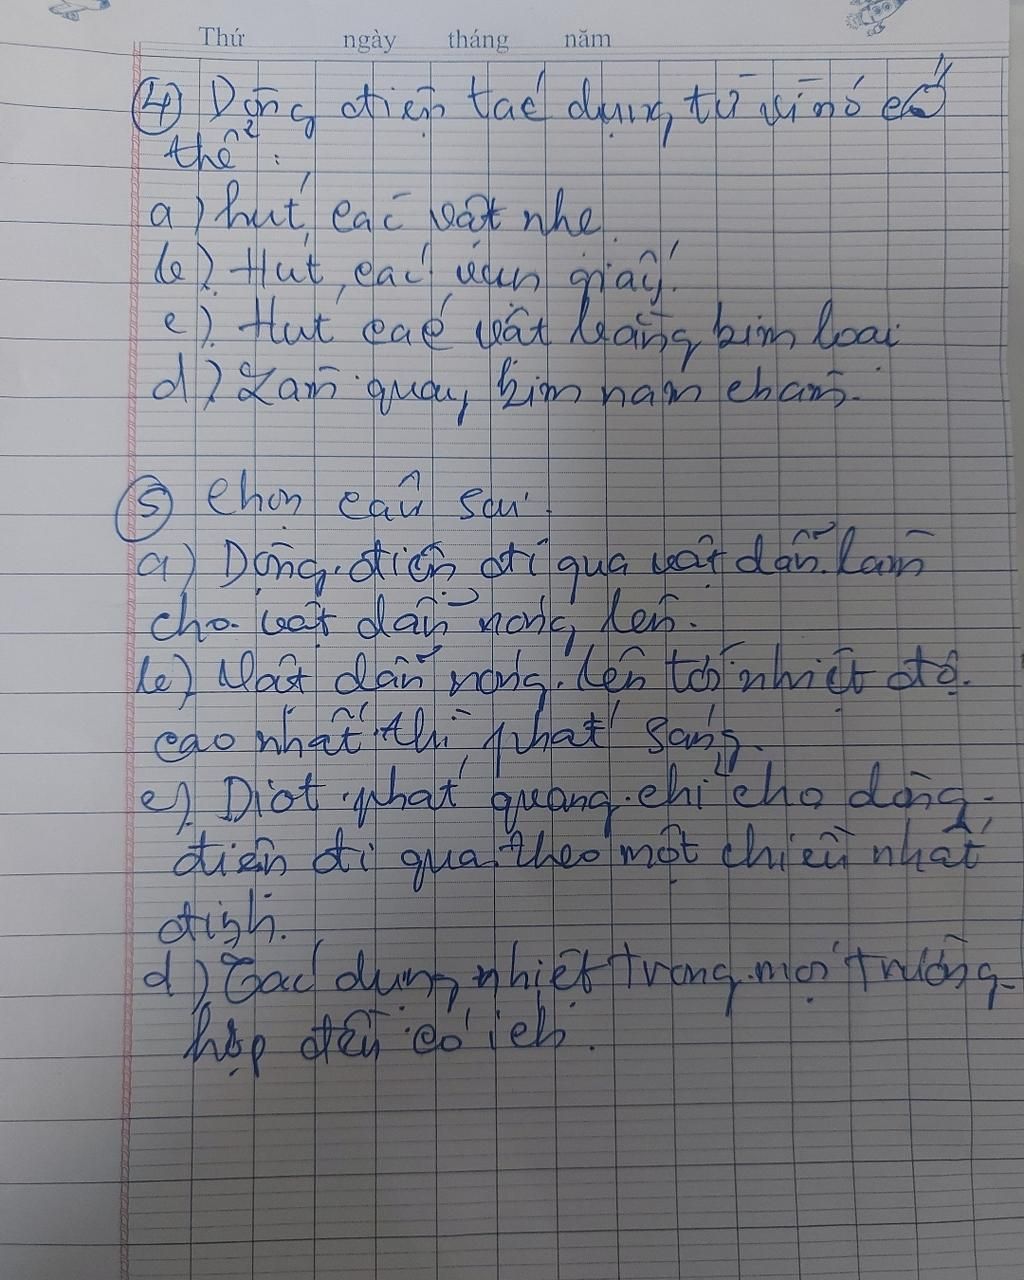 Thứ ngày tháng năm
④ Dòng điện tác dụng từ vì nó có
thể :
a) hút các vật nhẹ.
b) Hút các vụn giấy.
c) Hút các vật bằng kim loại
d) Làm quay kim nam châm.
⑤ Chọn câu sai.
a) Dòng điện đi qua vật dẫn làm
cho vật dẫn nóng lên.
b) Vật dẫn nóng lên tới nhiệt độ
cao nhất thì phát sáng.
c) Điot phát quang chỉ cho dòng
điện đi qua theo một chiều nhất
định.
d) Tác dụng nhiệt trong mọi trường
hợp đều có ích.